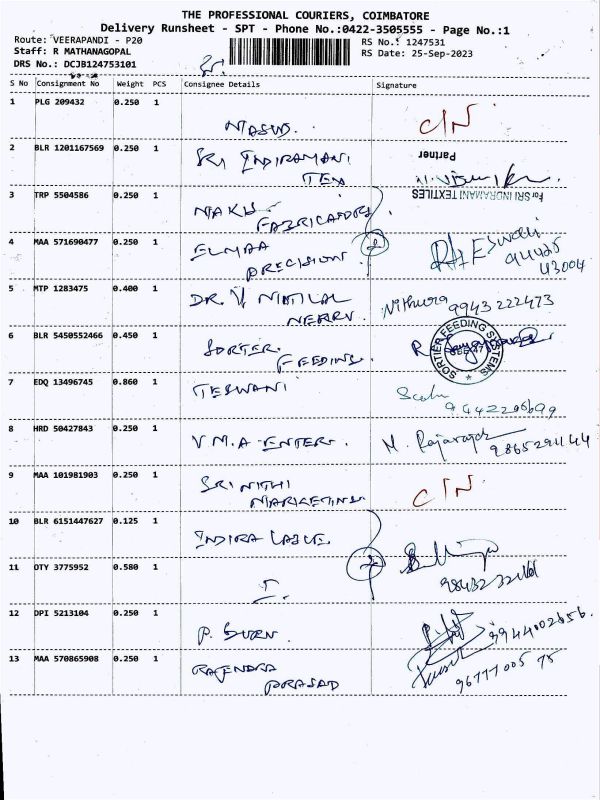 THE PROFESSIONAL COURIERS, COIMBATORE
Delivery Runsheet - SPT - Phone No.:0422-3505555 - Page No.:1
Route: VEERAPANDI - P20 RS No.: 1247531
Staff: R MATHANAGOPAL RS Date: 25-Sep-2023
DRS No.: DCJB124753101
S No Consignment No Weight PCS Consignee Details Signature
1 PLG 209432 0.250 1
C/N
2 BLR 1201167569 0.250 1 SRI INDIRAMANI
TEX
Partner
For SRI INDRAMANI TEXTILES
3 TRP 5504586 0.250 1
FABRICATORS
4 MAA 571690477 0.250 1 ELMAA
PRECISION
43004
5 MTP 1283475 0.400 1 DR. V
Nithura 9943222473
6 BLR 5450552466 0.450 1 SORTER
FEEDING.
SORTIER FEEDING SYSTEMS
7 EDQ 13496745 0.860 1 TESWANI
8 HRD 50427843 0.250 1 V.M.A-ENTER.
9 MAA 101981903 0.250 1 SRI NITHI
MARKETING
C/N
10 BLR 6151447627 0.125 1 INDIRA
11 OTY 3775952 0.580 1
12 DPI 5213104 0.250 1
13 MAA 570865908 0.250 1 RAJENDRA
PRASAD
9677700575